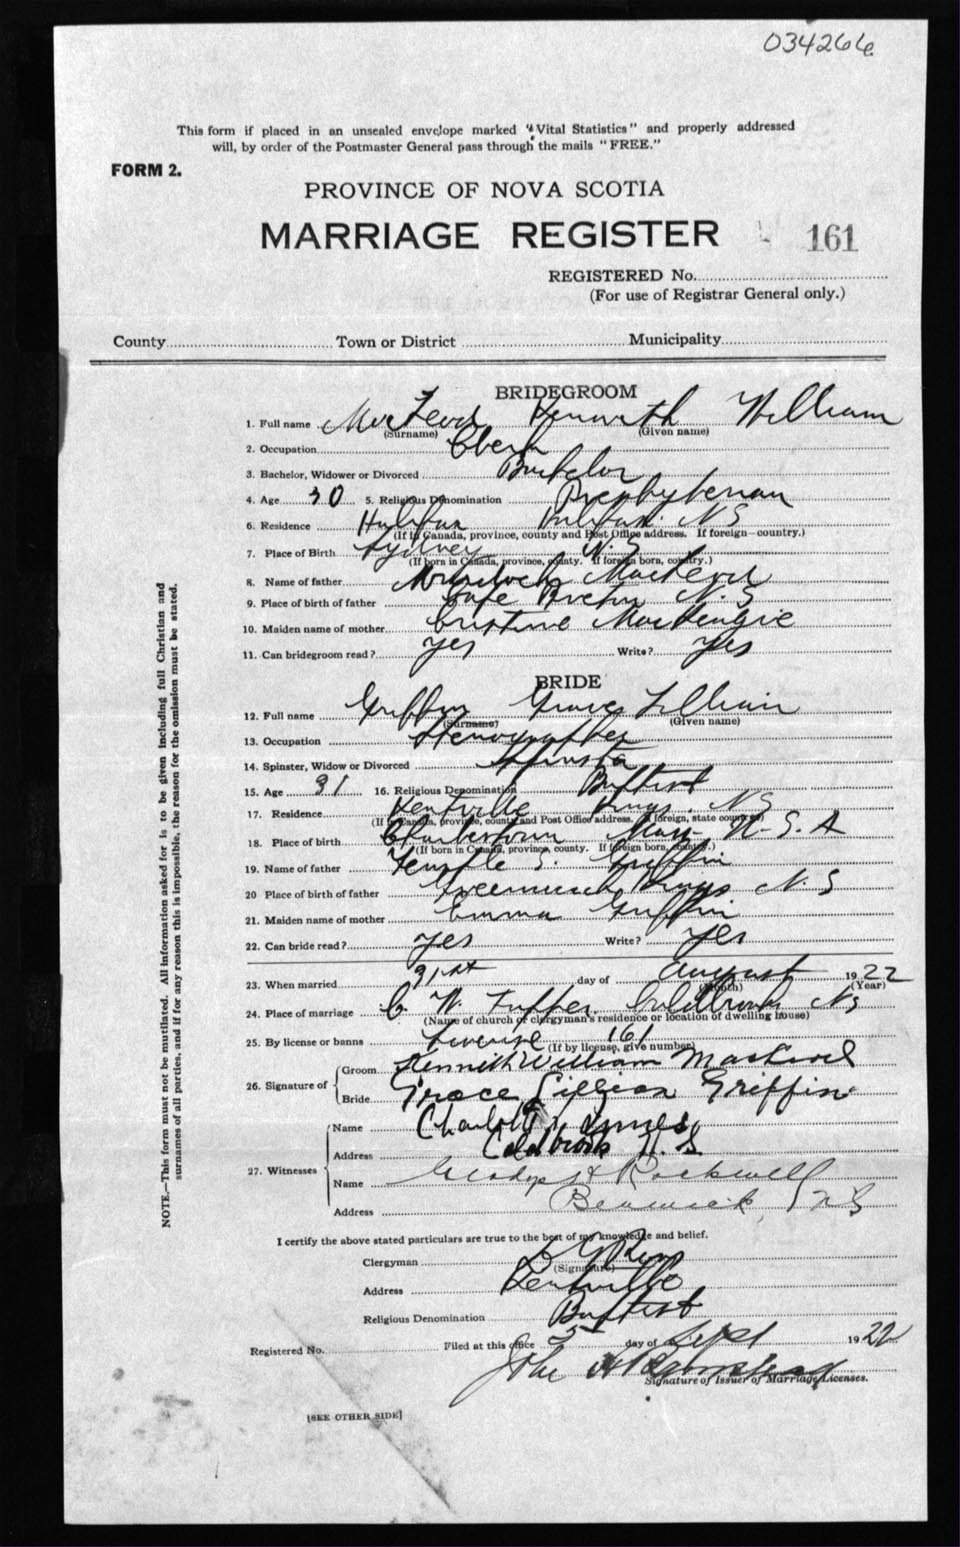 034266
This form if placed in an unsealed envelope marked "Vital Statistics" and properly addressed
will, by order of the Postmaster General pass through the mails "FREE."
FORM 2.
PROVINCE OF NOVA SCOTIA
MARRIAGE REGISTER 161
REGISTERED No.
(For use of Registrar General only.)
County Town or District Municipality
BRIDEGROOM
1. Full name MacLeod Kenneth William
(Surname) (Given name)
2. Occupation Clerk
3. Bachelor, Widower or Divorced Bachelor
4. Age 30 5. Religious Denomination Presbyterian
6. Residence Halifax Halifax NS
(If in Canada, province, county and Post Office address. If foreign—country.)
7. Place of Birth Sydney N.S
(If born in Canada, province, county. If foreign born, country.)
8. Name of father Murdoch MacLeod
9. Place of birth of father Cape Breton N.S
10. Maiden name of mother Cristine MacKenzie
11. Can bridegroom read? Yes Write? Yes
BRIDE
12. Full name Griffin Grace Lillian
(Surname) (Given name)
13. Occupation Stenographer
14. Spinster, Widow or Divorced Spinster
15. Age 31 16. Religious Denomination Baptist
17. Residence Kentville Kings NS
(If in Canada, province, county and Post Office address. If foreign, state country)
18. Place of birth Charlestown Mass U.S.A
(If born in Canada, province, county. If foreign born, country.)
19. Name of father Temple S. Griffin
20 Place of birth of father Greenwich Kings N.S
21. Maiden name of mother Emma Griffin
22. Can bride read? yes Write? yes
23. When married 31st day of August 1922
(Month) (Year)
24. Place of marriage C. W. Tupper Coldbrook NS
(Name of church or clergyman's residence or location of dwelling house)
25. By license or banns License 161
(If by license, give number)
26. Signature of Groom Kenneth William MacLeod
Bride Grace Lillian Griffin
27. Witnesses
Name Charlotte
Address Coldbrook N.S
Name Gladys H Rockwell
Address Berwick, NS
I certify the above stated particulars are true to the best of my knowledge and belief.
Clergyman
(Signature)
Address Kentville
Religious Denomination Baptist
Registered No. Filed at this office 5 day of Sept 1922
John
Signature of Issuer of Marriage Licenses.
[SEE OTHER SIDE]
NOTE.—This form must not be mutilated. All information asked for is to be given including full Christian and
surnames of all parties, and if for any reason this is impossible, the reason for the omission must be stated.